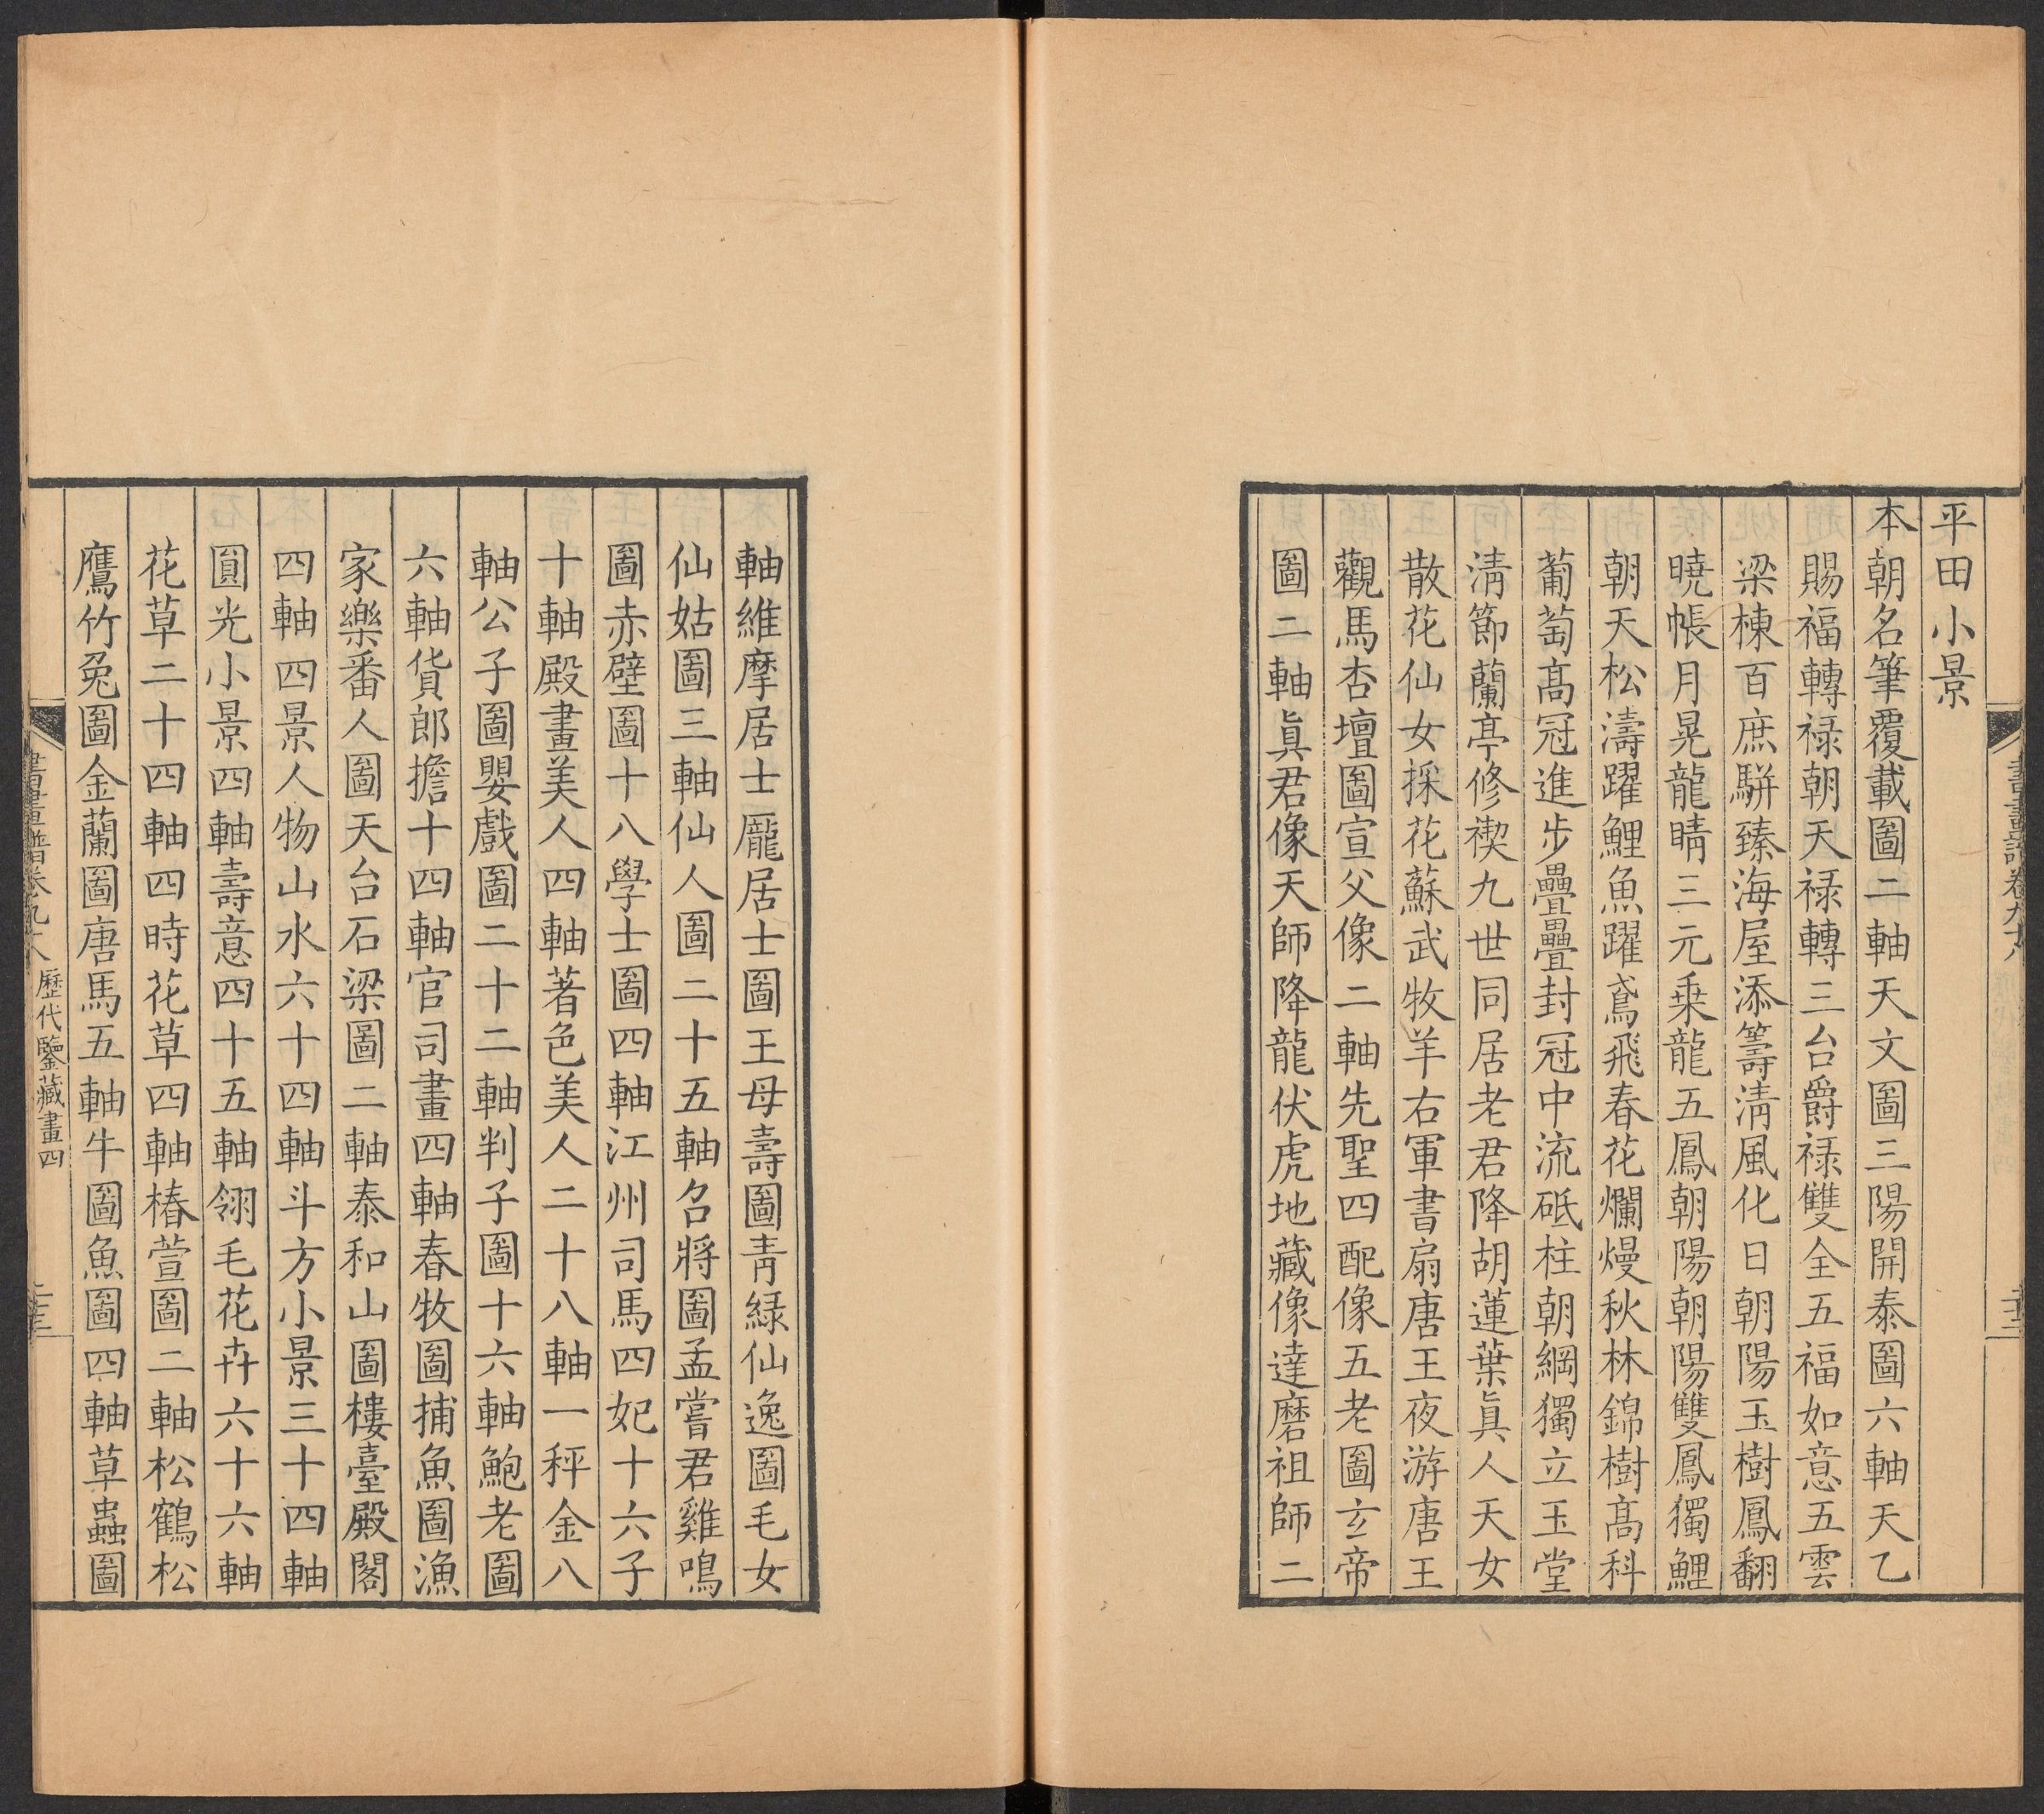 平田小景
本朝名筆覆載圖二軸天文圖三陽開泰圖六軸天乙
賜福轉禄朝天禄轉三台爵禄雙全五福如意五雲
梁棟百庶駢臻海屋添籌清風化日朝陽玉樹鳳翻
曉帳月晃龍睛三元乗龍五鳳朝陽朝陽雙鳳獨鯉
朝天松濤躍鯉魚躍鳶飛春花爛熳秋林錦樹高科
葡萄高冠進步疊疊封冠中流砥柱朝綱獨立玉堂
清節蘭亭修禊九世同居老君降胡蓮葉眞人天女
散花仙女採花蘇武牧羊右軍書扇唐王夜游唐王
觀馬杏壇圖宣父像二軸先聖四配像五老圖玄帝
圖二軸眞君像天師降龍伏虎地藏像達磨祖師二
軸維摩居士龐居士圖王母壽圖靑緑仙逸圖毛女
仙姑圖三軸仙人圖二十五軸召將圖孟嘗君雞鳴
圖赤壁圖十八學士圖四軸江州司馬四妃十六子
十軸殿畫美人四軸著色美人二十八軸一秤金八
軸公子圖嬰戲圖二十二軸判子圖十六軸鮑老圖
六軸貨郎擔十四軸官司畫四軸春牧圖捕魚圖漁
家樂番人圖天台石梁圖二軸泰和山圖樓臺殿閣
四軸四景人物山水六十四軸斗方小景三十四軸
圓光小景四軸壽意四十五軸翎毛花卉六十六軸
花草二十四軸四時花草四軸椿萱圖二軸松鶴松
鷹竹兔圖金蘭圖唐馬五軸牛圖魚圖四軸草蟲圖
書畫譜卷九十八 歷代鑒藏畫四